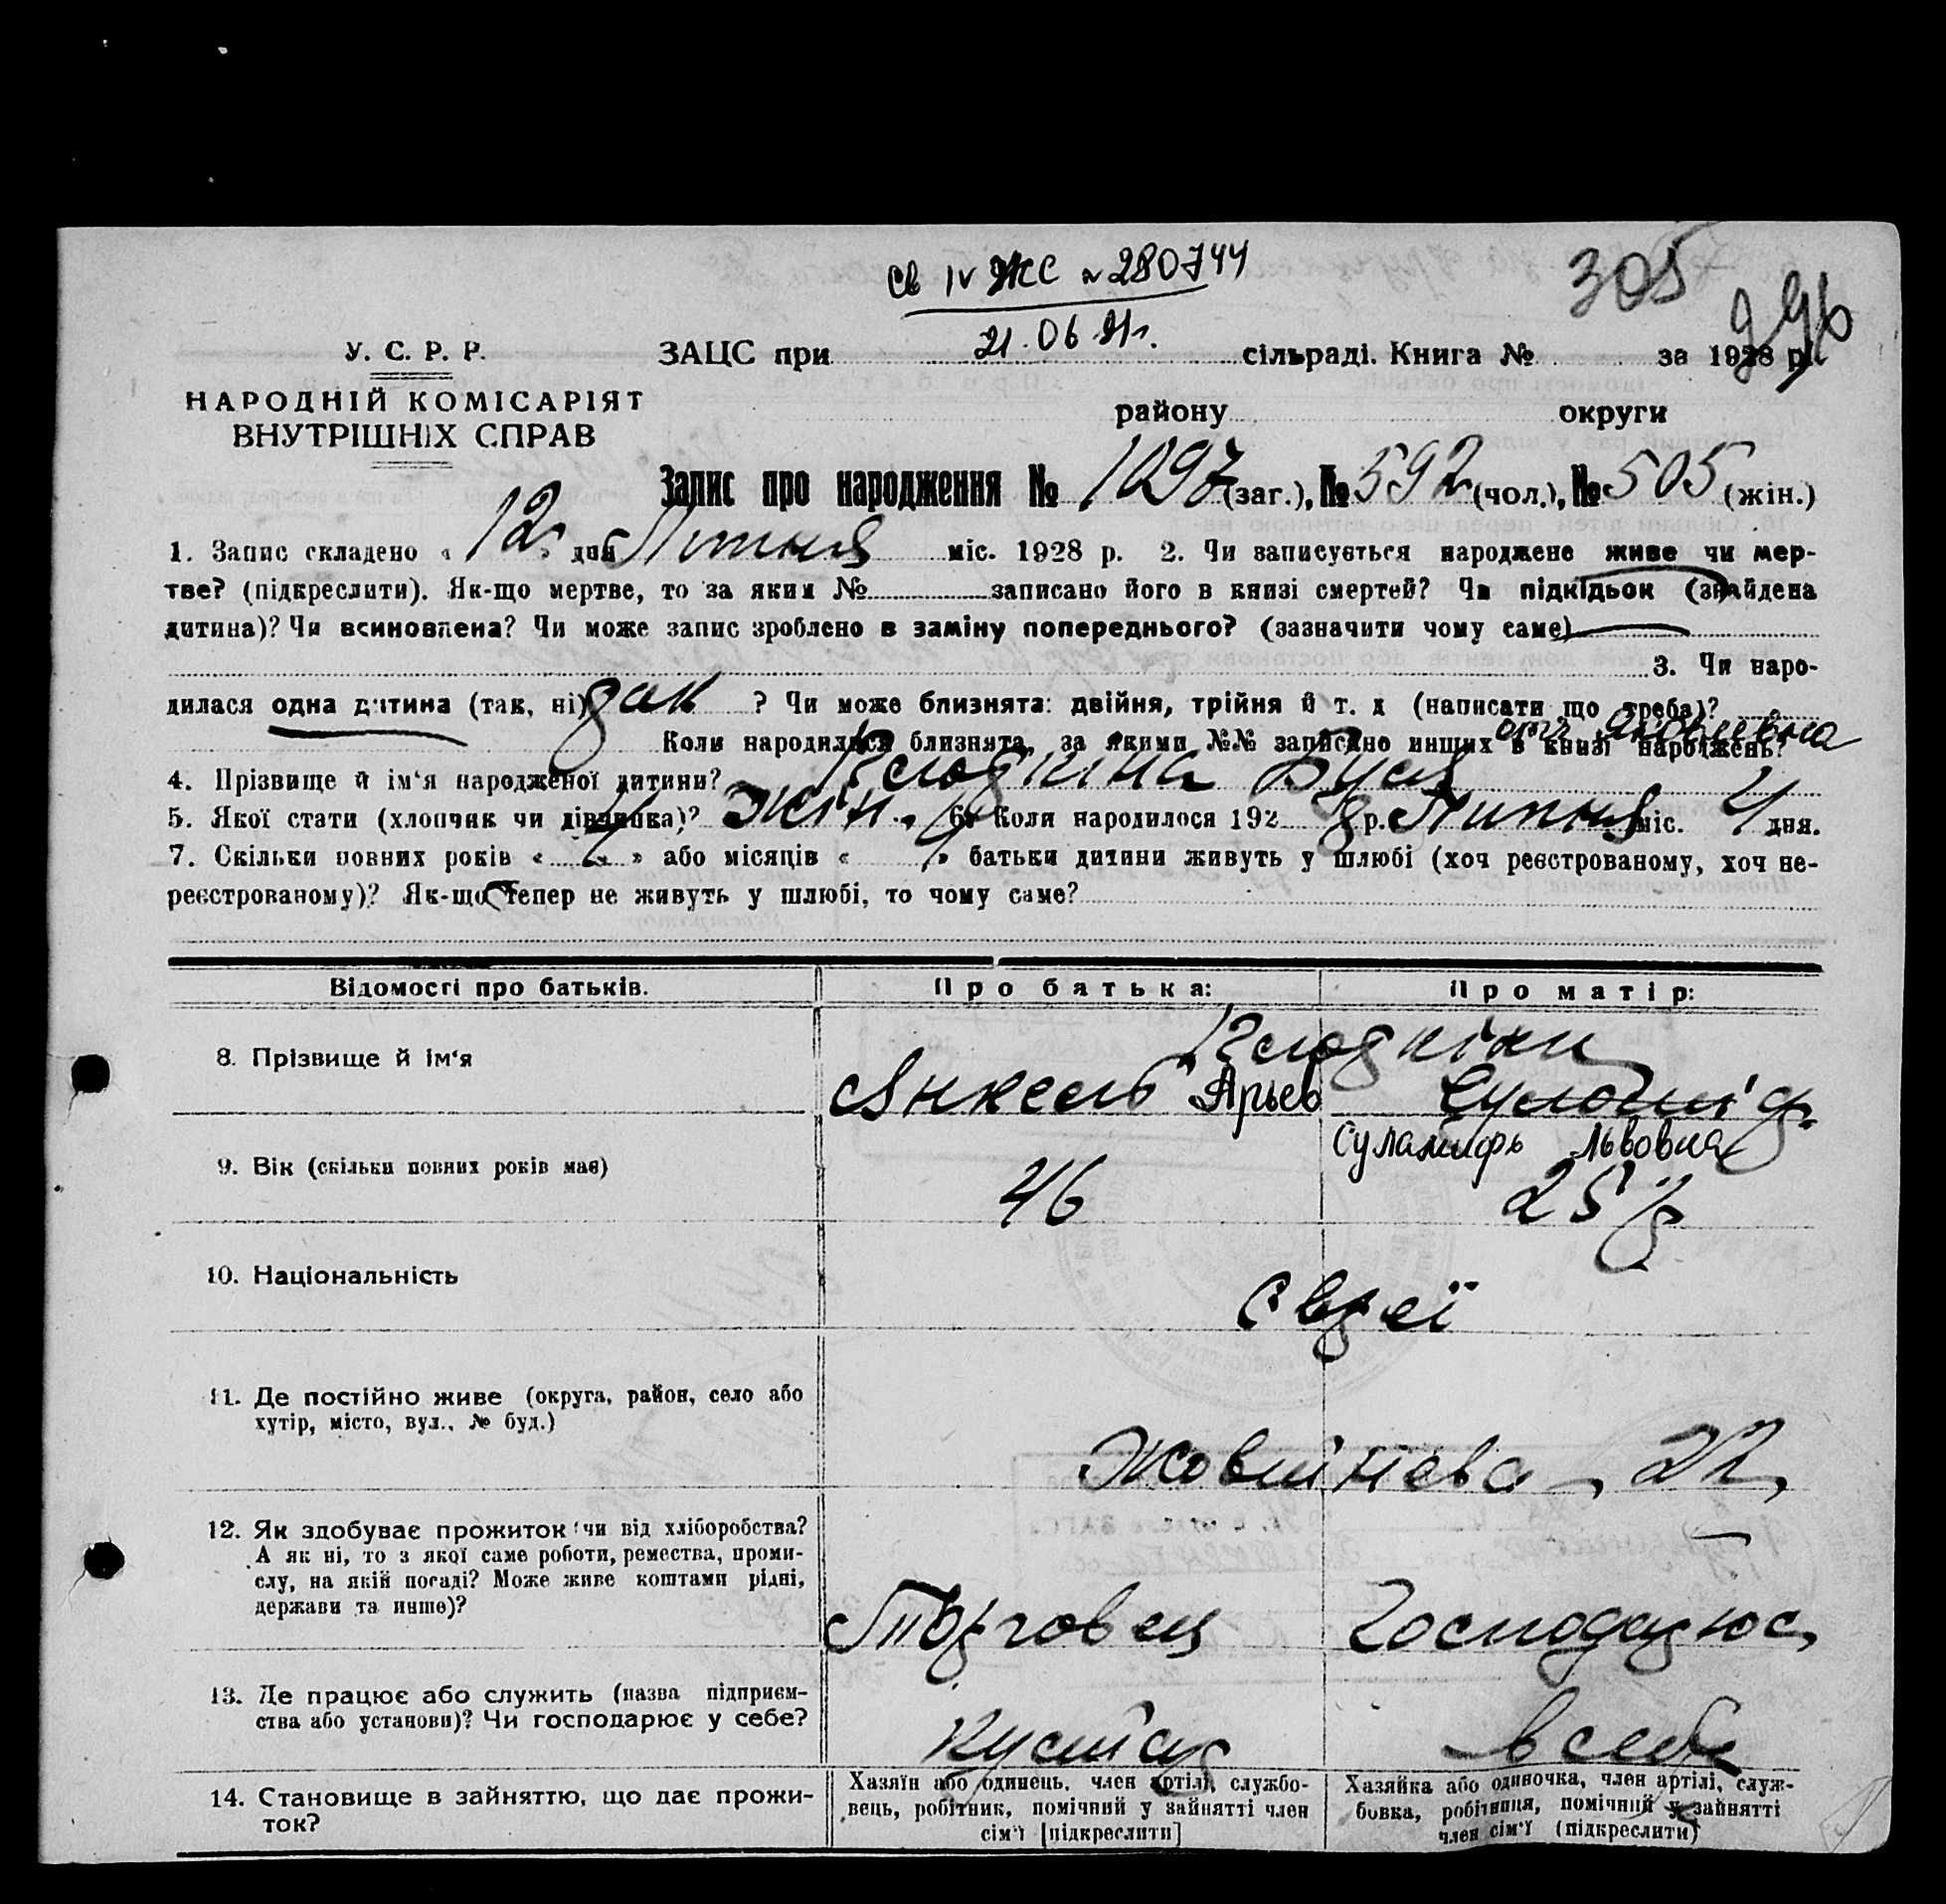 св IV ЖС № 280744
305
296
21.06.91г.
У. С. Р. Р.
ЗАЦС при сільраді. Книга № за 1928 р.
НАРОДНІЙ КОМІСАРІЯТ
ВНУТРІШНІХ СПРАВ
району округи
Запис про народження № 1097 (заг.), № 592 (чол.), № 505 (жін.)
1. Запис складено « 12 » дня Липня міс. 1928 р. 2. Чи записується народжене живе чи мер-
тве? (підкреслити). Як-що мертве, то за яким № записано його в книзі смертей? Чи підкідьок (знайдена
дитина)? Чи всиновлена? Чи може запис зроблено в заміну попереднього? (зазначити чому саме)
3. Чи наро-
дилася одна дитина (так, ні) так ? Чи може близнята: двійня, трійня й т. д (написати що треба)?
Коли народилися близнята, за якими №№ записано инших в книзі народжень?
отч Яковлевна
4. Прізвище й ім'я народженої дитини? Буся
5. Якої стати (хлопчик чи дівчинка)? Жін. 6. Коли народилося 1928 р. Липня міс. 4 дня.
7. Скільки повних років « 4 » або місяців « » батьки дитини живуть у шлюбі (хоч реєстрованому, хоч не-
реєстрованому)? Як-що тепер не живуть у шлюбі, то чому саме?
Відомості про батьків. Про батька: Про матір:
8. Прізвище й ім'я
Янкель Арьев
Суламифь Львовна
9. Вік (скільки повних років має) 46 25 р
10. Національність Євреї
11. Де постійно живе (округа, район, село або
хутір, місто, вул., № буд.)
Жовтнева, 22,
12. Як здобуває прожиток чи від хліборобства?
А як ні, то з якої саме роботи, ремества, проми-
слу, на якій посаді? Може живе коштами рідні,
держави та инше)?
Торговец Господарює,
13. Де працює або служить (назва підприєм-
ства або установи)? Чи господарює у себе?
Кустар в себе
14. Становище в зайняттю, що дає прожи-
ток?
Хазяїн або одинець, член артілі, службо-
вець, робітник, помічний у зайнятті член
сім'ї [підкреслити]
Хазяйка або одиночка, член артілі, служ-
бовка, робітниця, помічний у зайнятті
член сім'ї (підкреслити)